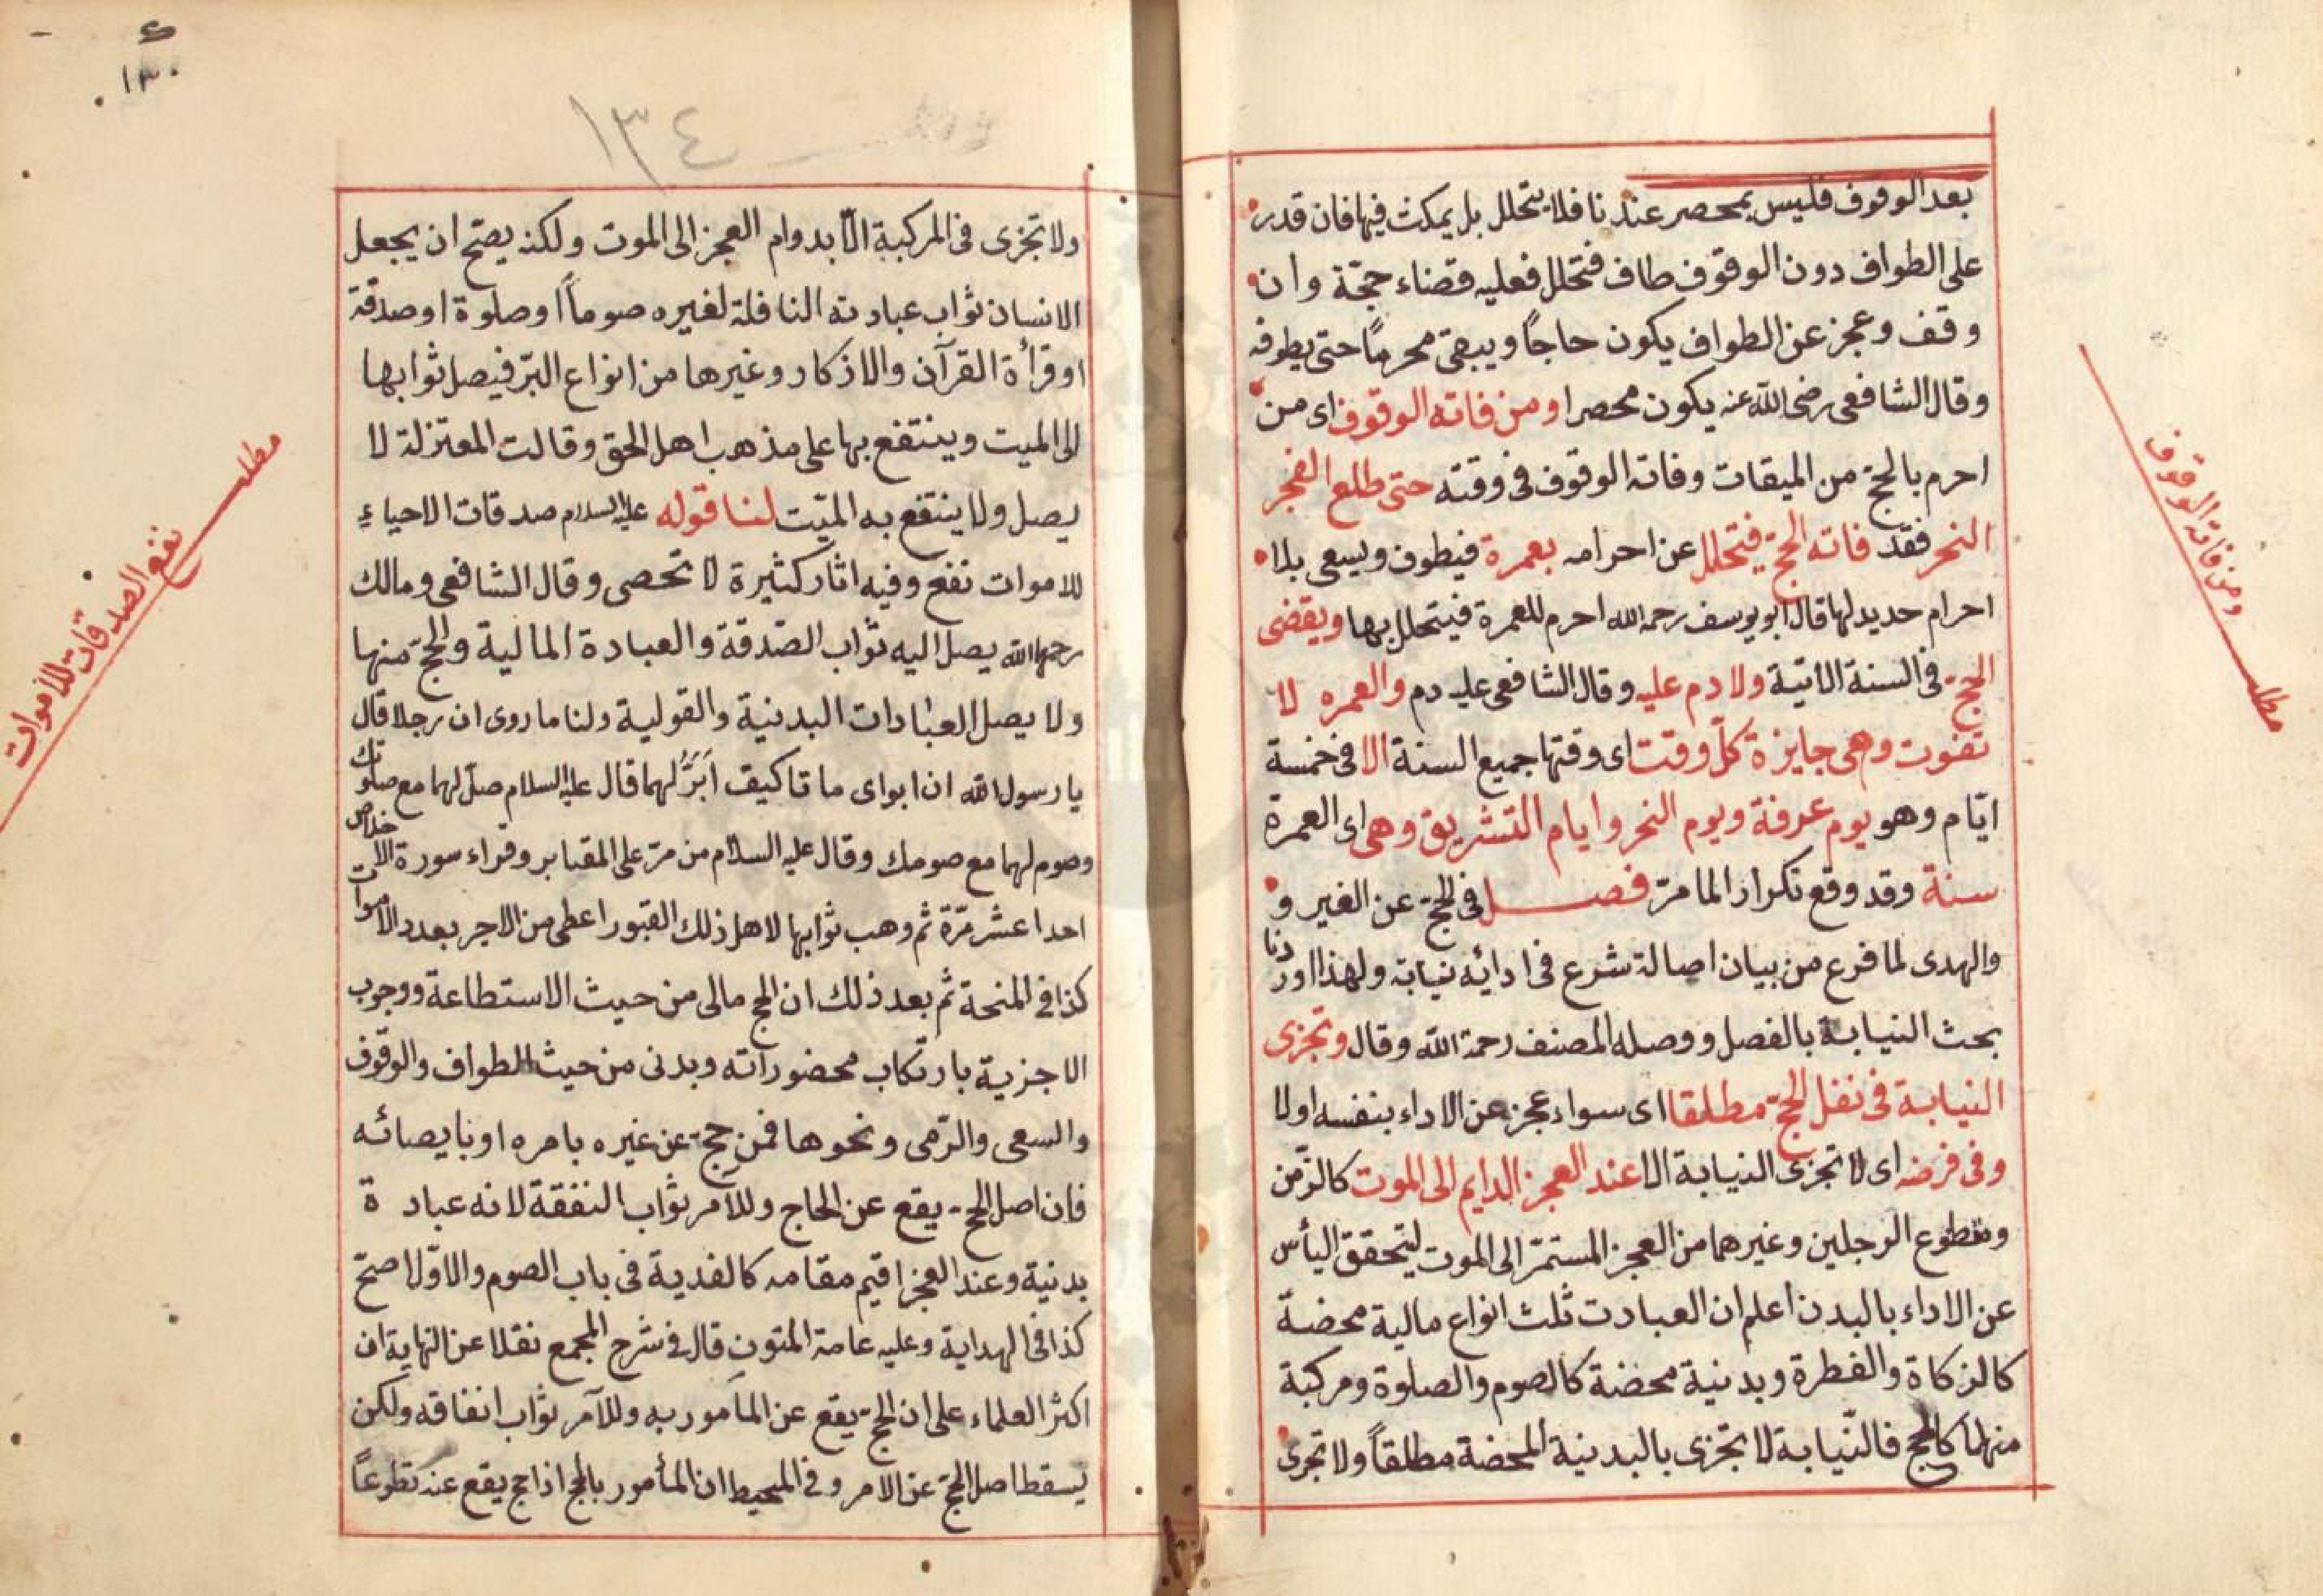 بعد الوقوف فليس بمحصر عندنا فلا يتحلل بل يمكث فيها فان قدر
على الطواف دون الوقوف طاف فتحلل فعليه قضاء حجّة وان
وقف وعجز عن الطواف يكون حاجاً ويبقى محرماً حتى يطوفه
وقال الشافعى رضى الله عنه يكون محصرا ومن فاته الوقوف اى من
احرم بالحج من الميقات وفاته الوقوف فى وقته حتى طلع الفجر
النحر فقد فاته الحج فيتحلل عن احرامه بعمرة فيطوف ويسعى بلا
احرام حديد لها قال ابو يوسف رحمه الله احرم للعمرة فيتحلل بها ويقضى
الحج فى السنة الاتية ولا دم عليه وقال الشافعى عليه دم والعمره لا
تفوت وهى جايزة كلّ وقت اى وقتها جميع السنة الا فى خمسة
ايّام وهو يوم عرفة ويوم النحر وايام التشريق وهى اى العمرة
سنة وقد وقع تكرارا لما مرّ فصل فى الحج عن الغير و
والهدى لما فرع من بيان اصالة شرع فى ادائه نيابة ولهذا اوردنا
بحث النيابة بالفصل ووصله المصنف رحمة الله وقال وتجزى
النيابة فى نفل الحج مطلقا اى سواء عجز عن الاداء بنفسه اولا
وفى فرضه اى لا تجزى النيابة الا عند العجز الدايم الى الموت كالزّمن
ومقطوع الرجلين وغيرهما من العجز المستمرّ الى الموت ليتحقق اليأس
عن الاداء بالبدن اعلم ان العبادت ثلث انواع مالية محضة
كالزكاة والفطرة وبدنية محضة كالصوم والصلوة ومركبة
منهما كالحج فالنّيابة لا تجزى بالبدنية المحضة مطلقاً ولا تجزى
ومن فاته الوقوف
مطلب
١٣٠
١٣٤
ولا تجزى فى المركبة الّا بدوام العجز الى الموت ولكنه يصحّ ان يجعل
الانسان ثواب عبادته النافلة لغيره صوماً او صلوة او صدقة
او قرأة القرآن والاذكار وغيرها من انواع البرّ فيصل ثوابها
الى الميت وينتفع بها على مذهب اهل الحق وقالت المعتزلة لا
يصل ولا ينتفع به الميّت لنا قوله عليه السلام صدقات الاحياء
للاموات نفع وفيه اثار كثيرة لا تحصى وقال الشافعى ومالك
رحمهما الله يصل اليه ثواب الصّدقة والعبادة المالية والحج منها
ولا يصل العبادات البدنية والقولية ولنا ما روى ان رجلا قال
يا رسول الله ان ابواى ماتا كيف اَبَرُّ لهما قال عليه السلام صلّ لهما مع صلوتك
وصوم لهما مع صومك وقال عليه السلام من مرّ على المقابر وقراء سورة الاخلاص
احدا عشر مرّة ثم وهب ثوابها لاهل ذلك القبور اعطى من الاجر بعدد الاموات
كذا فى المنحة ثم بعد ذلك ان الحج مالى من حيث الاستطاعة ووجوب
الاجزية بارتكاب محضوراته وبدنى من حيث الطواف والوقوف
والسعى والرّمى ونحوها فمن حجّ عن غيره بامره او بايصائه
فان اصل الحج يقع عن الحاج وللآمر ثواب النفقة لانه عبادة
بدنية وعند العجز اقيم مقامه كالفدية فى باب الصوم والاوّل اصحّ
كذا فى الهداية وعليه عامة المتون قال فى شرح المجمع نقلا عن النهاية ان
اكثر العلماء على ان الحج يقع عن المأمور به وللآمر ثواب انفاقه ولكن
يسقط اصل الحج عن الامر وفى المحيط ان المأمور بالحج اذا حج يقع عنه تطوعاً
مطلب
نفع الصدقات للاموات